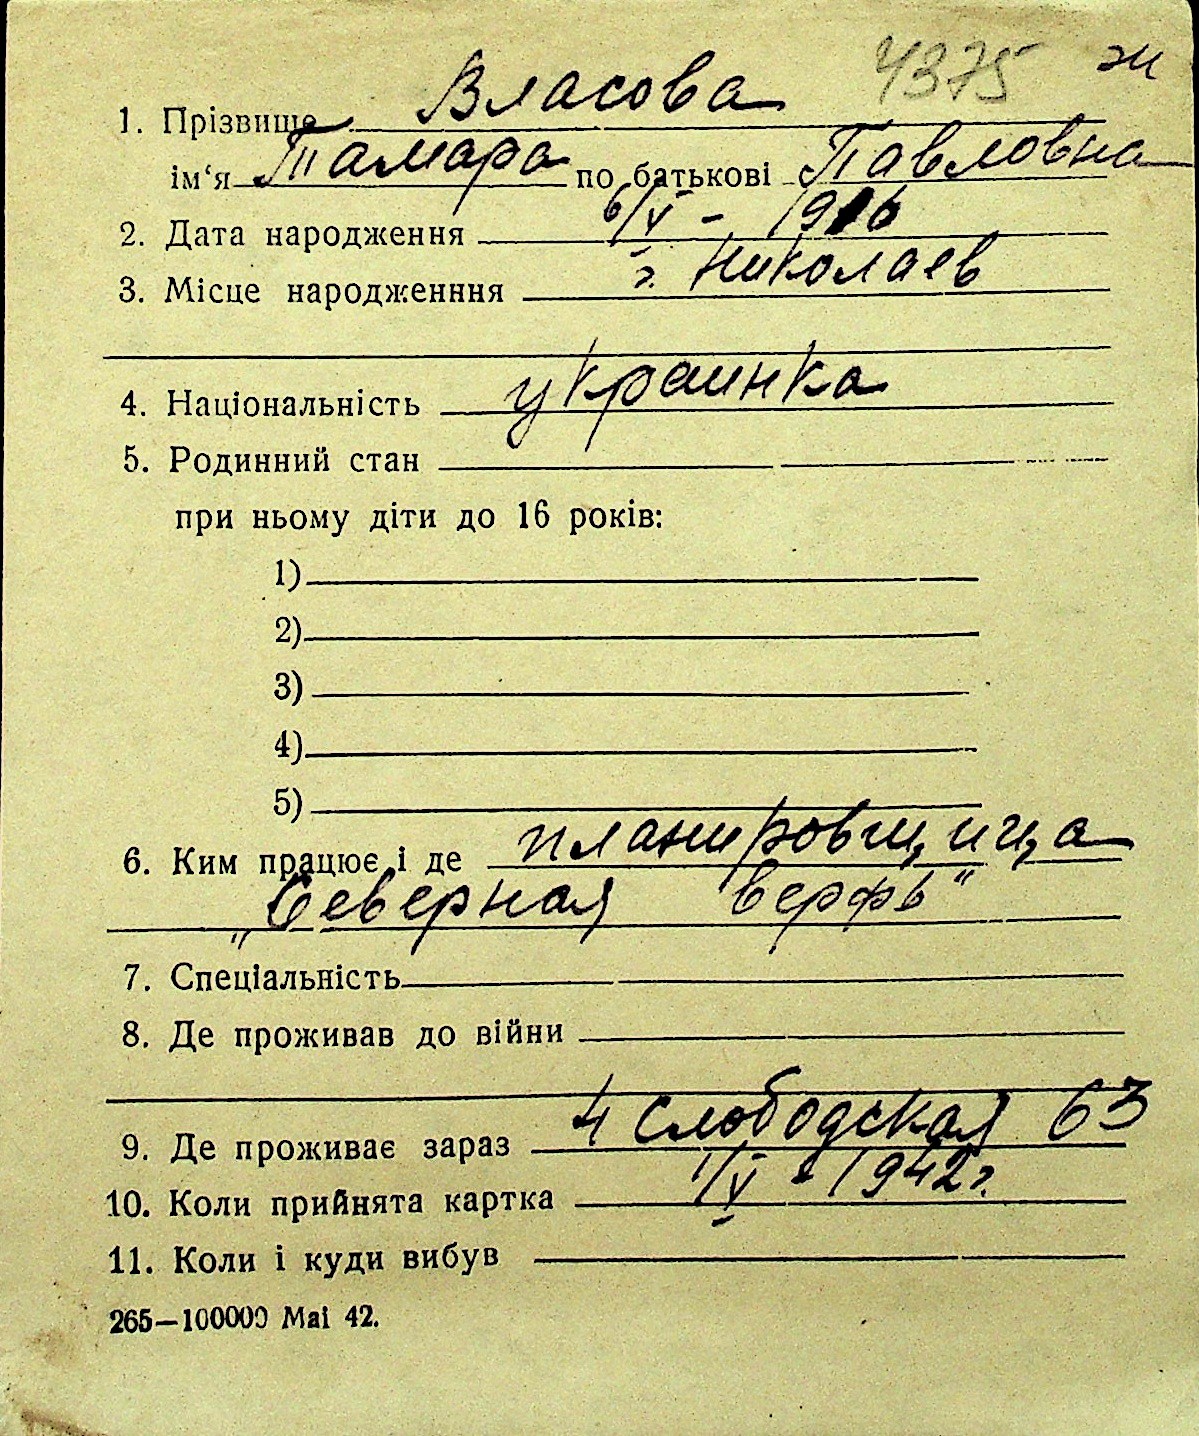 4375 ж
1. Прізвище Власова
ім‘я Тамара по батькові Павловна
2. Дата народження 6/V - 1916
3. Місце народженння г. Николаев
4. Національність украинка
5. Родинний стан
при ньому діти до 16 років:
1)
2)
3)
4)
5)
6. Ким працює і де планировщица
„Северная верфь"
7. Спеціальність
8. Де проживав до війни
9. Де проживає зараз 4 Слободская 63
10. Коли прийнята картка 1/V - 1942 г.
11. Коли і куди вибув
265—100000 Mai 42.